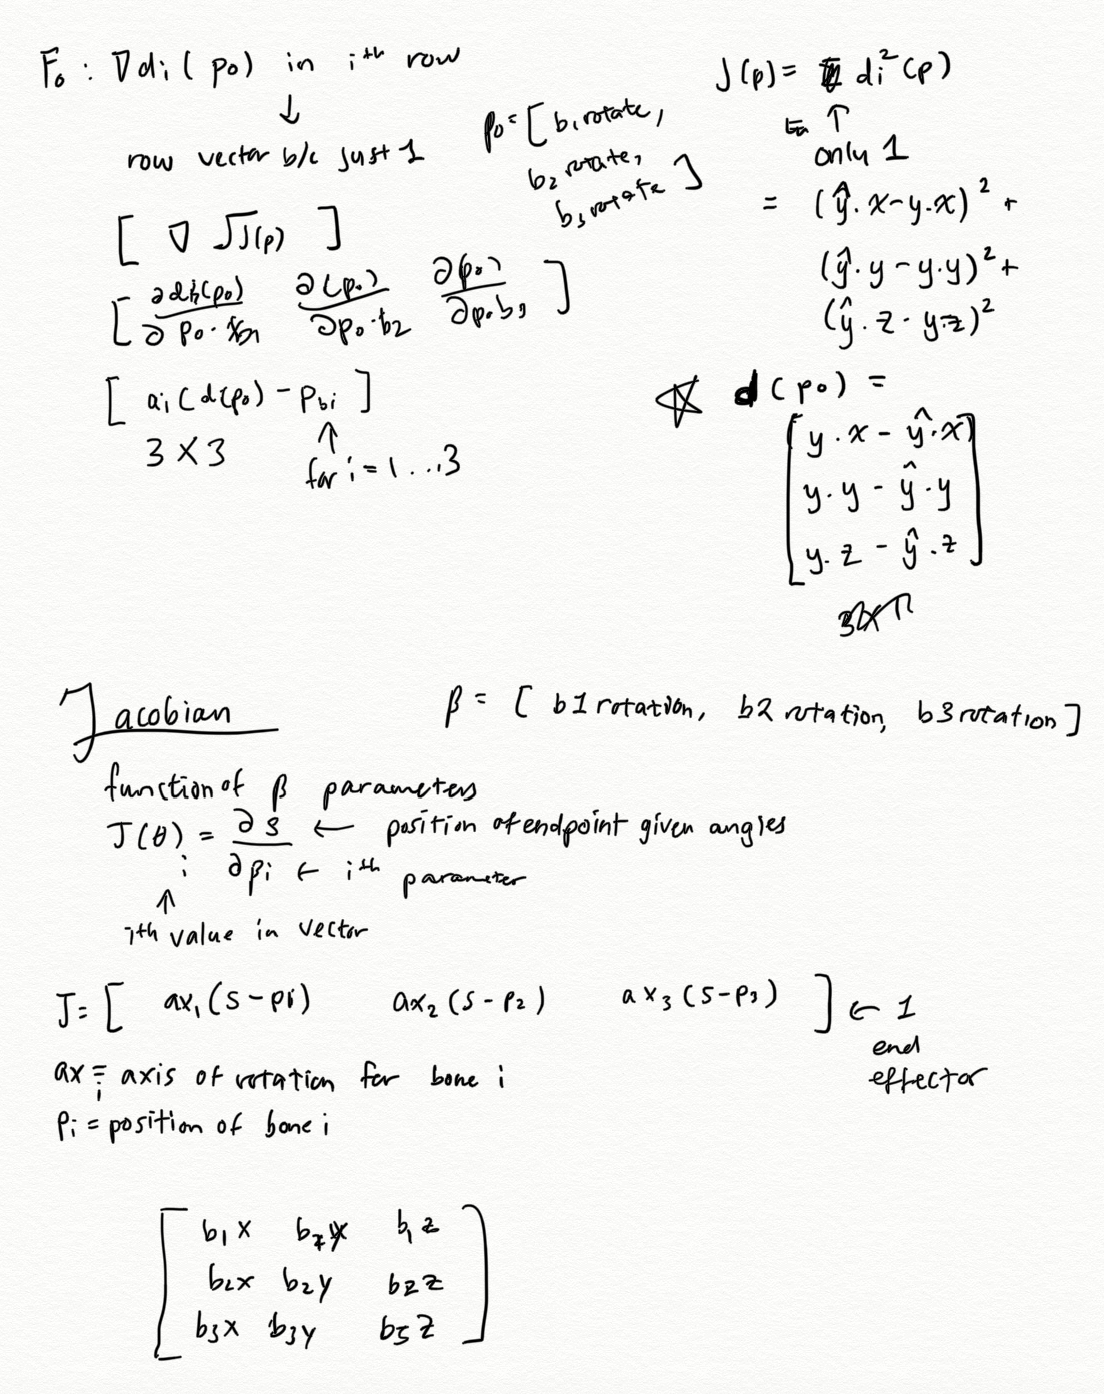 F₀ : ∇di( p₀) in iᵗʰ row
↓
row vector b/c just 1
p₀ = [ b₁ rotate,
b₂ rotate,
b₃ rotate ]
[ ∇ √J(p) ]
[ ∂di(p₀)/∂p₀·b₁ ∂(p₀)/∂p₀·b₂ ∂(p₀)/∂p₀b₃ ]
[ ai(d(p₀) - Pbi ]
3 X 3
↑
for i = 1 ...3
J(p) = di²(p)
↑
only 1
= (ŷ.x-y.x)² +
(ŷ.y - y.y)² +
(ŷ.z - y.z)²
d(p₀) =
y.x - ŷ.x
y.y - ŷ.y
y.z - ŷ.z
Jacobian
β = [ b1 rotation, b2 rotation, b3 rotation ]
function of β parameters
J(θ)i = ∂s/∂βi
← position of endpoint given angles
← iᵗʰ parameter
↑
iᵗʰ value in vector
J = [ ax₁(s-pi) ax₂(s-p₂) ax₃(s-p₃) ] ← 1
end
effector
axi = axis of rotation for bone i
Pi = position of bone i
b₁x b₁y b₁z
b₂x b₂y b₂z
b₃x b₃y b₃z